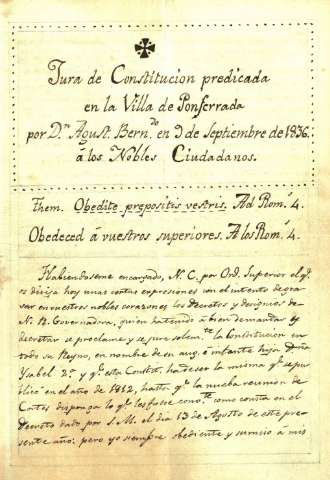 Jura de Constitucion predicada
en la Villa de Ponferrada
por Dn. Agust. Berndo. en 9 de Septiembre de 1836.
á los Nobles Ciudadanos.
Them. Obedite prepositis vestris. Ad Rom.s 4.
Obedeced á vuestros superiores. A los Rom.s 4.
Habiendoseme encargado, N. C. por Ord. Superior el qe.
os dirija hoy unas cortas expresiones con el intento de gra-
var en vuestros nobles corazones los decretos y designios de
N. R. Governadora, quien ha tenido á bien demandar y
decretar se proclame y se jure solem.te la Constitucion en
todo su Reyno, en nombre de su aug. é infante hija Dña
Ysabel 2ª y qe. esta Constit. ha de ser la misma qe. se pu-
blicó en el año de 1812, hasta qe. la nueba reunion de
Cortes disponga lo qe. les fuese conv.te como consta en el
Decreto dado por S. M. el dia 13 de Agosto de este pre-
sente año: pero yo siempre obediente y sumiso á mis